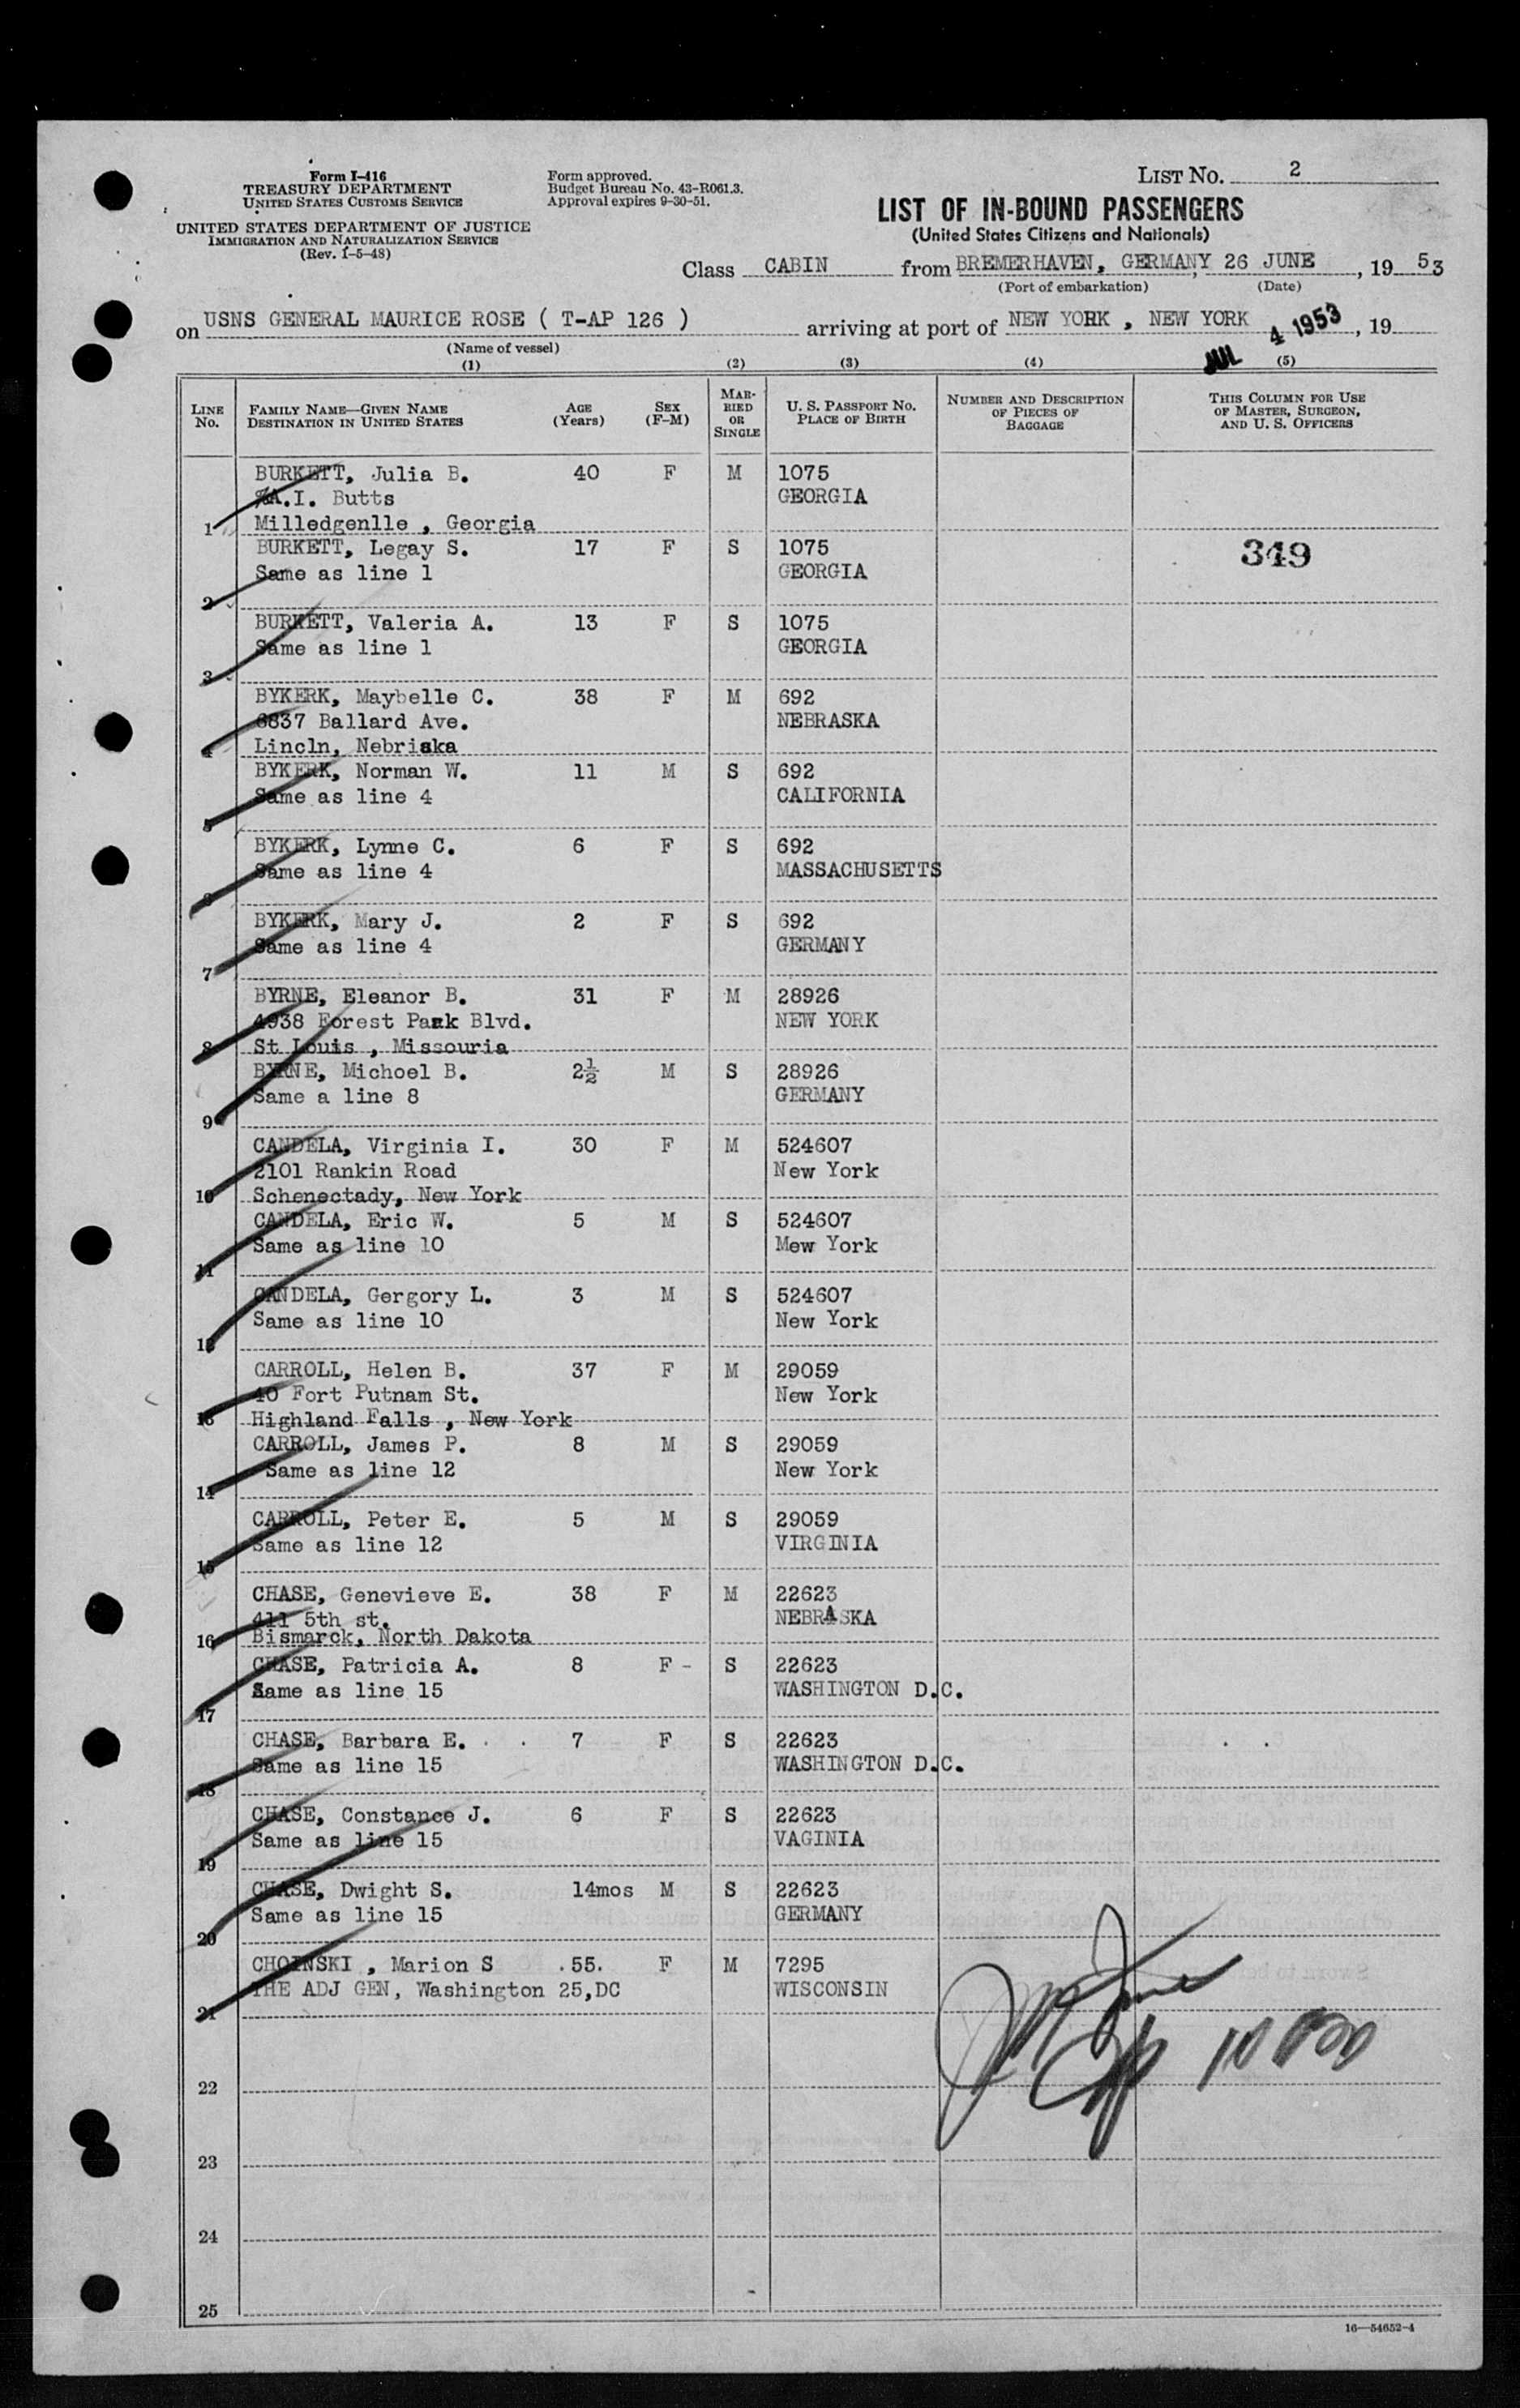 Form I-416
TREASURY DEPARTMENT
UNITED STATES CUSTOMS SERVICE
UNITED STATES DEPARTMENT OF JUSTICE
IMMIGRATION AND NATURALIZATION SERVICE
(Rev. 1-5-48)
Form approved.
Budget Bureau No. 43-R061.3.
Approval expires 9-30-51.
LIST NO. 2
LIST OF IN-BOUND PASSENGERS
(United States Citizens and Nationals)
Class CABIN from BREMERHAVEN, GERMANY, 26 JUNE, 19 53
(Port of embarkation) (Date)
on USNS GENERAL MAURICE ROSE ( T-AP 126 ) arriving at port of NEW YORK , NEW YORK JUL 4 1953, 19
(Name of vessel)
(1) (2) (3) (4) (5)
LINE No. FAMILY NAME—GIVEN NAME DESTINATION IN UNITED STATES AGE (Years) SEX (F-M) MARRIED OR SINGLE U. S. PASSPORT NO. PLACE OF BIRTH NUMBER AND DESCRIPTION OF PIECES OF BAGGAGE THIS COLUMN FOR USE OF MASTER, SURGEON, AND U. S. OFFICERS
BURKETT, Julia B. 40 F M 1075
%A.I. Butts GEORGIA
1 Milledgenlle , Georgia
BURKETT, Legay S. 17 F S 1075 349
Same as line 1 GEORGIA
2
BURKETT, Valeria A. 13 F S 1075
Same as line 1 GEORGIA
3
BYKERK, Maybelle C. 38 F M 692
6837 Ballard Ave. NEBRASKA
4 Lincln, Nebriska
BYKERK, Norman W. 11 M S 692
Same as line 4 CALIFORNIA
5
BYKERK, Lynne C. 6 F S 692
Same as line 4 MASSACHUSETTS
6
BYKERK, Mary J. 2 F S 692
Same as line 4 GERMANY
7
BYRNE, Eleanor B. 31 F M 28926
4938 Forest Park Blvd. NEW YORK
8 St Louis , Missouria
BYRNE, Michoel B. 2½ M S 28926
Same a line 8 GERMANY
9
CANDELA, Virginia I. 30 F M 524607
2101 Rankin Road New York
10 Schenectady, New York
CANDELA, Eric W. 5 M S 524607
Same as line 10 Mew York
11
CANDELA, Gergory L. 3 M S 524607
Same as line 10 New York
12
CARROLL, Helen B. 37 F M 29059
40 Fort Putnam St. New York
13 Highland Falls , New York
CARROLL, James P. 8 M S 29059
Same as line 12 New York
14
CARROLL, Peter E. 5 M S 29059
Same as line 12 VIRGINIA
15
CHASE, Genevieve E. 38 F M 22623
411 5th st. NEBRASKA
16 Bismarck, North Dakota
CHASE, Patricia A. 8 F - S 22623
Same as line 15 WASHINGTON D.C.
17
CHASE, Barbara E. 7 F S 22623
Same as line 15 WASHINGTON D.C.
18
CHASE, Constance J. 6 F S 22623
Same as line 15 VAGINIA
19
CHASE, Dwight S. 14mos M S 22623
Same as line 15 GERMANY
20
CHOINSKI , Marion S .55. F M 7295
THE ADJ GEN, Washington 25,DC WISCONSIN
21
22
23
24
25
16—54652-4